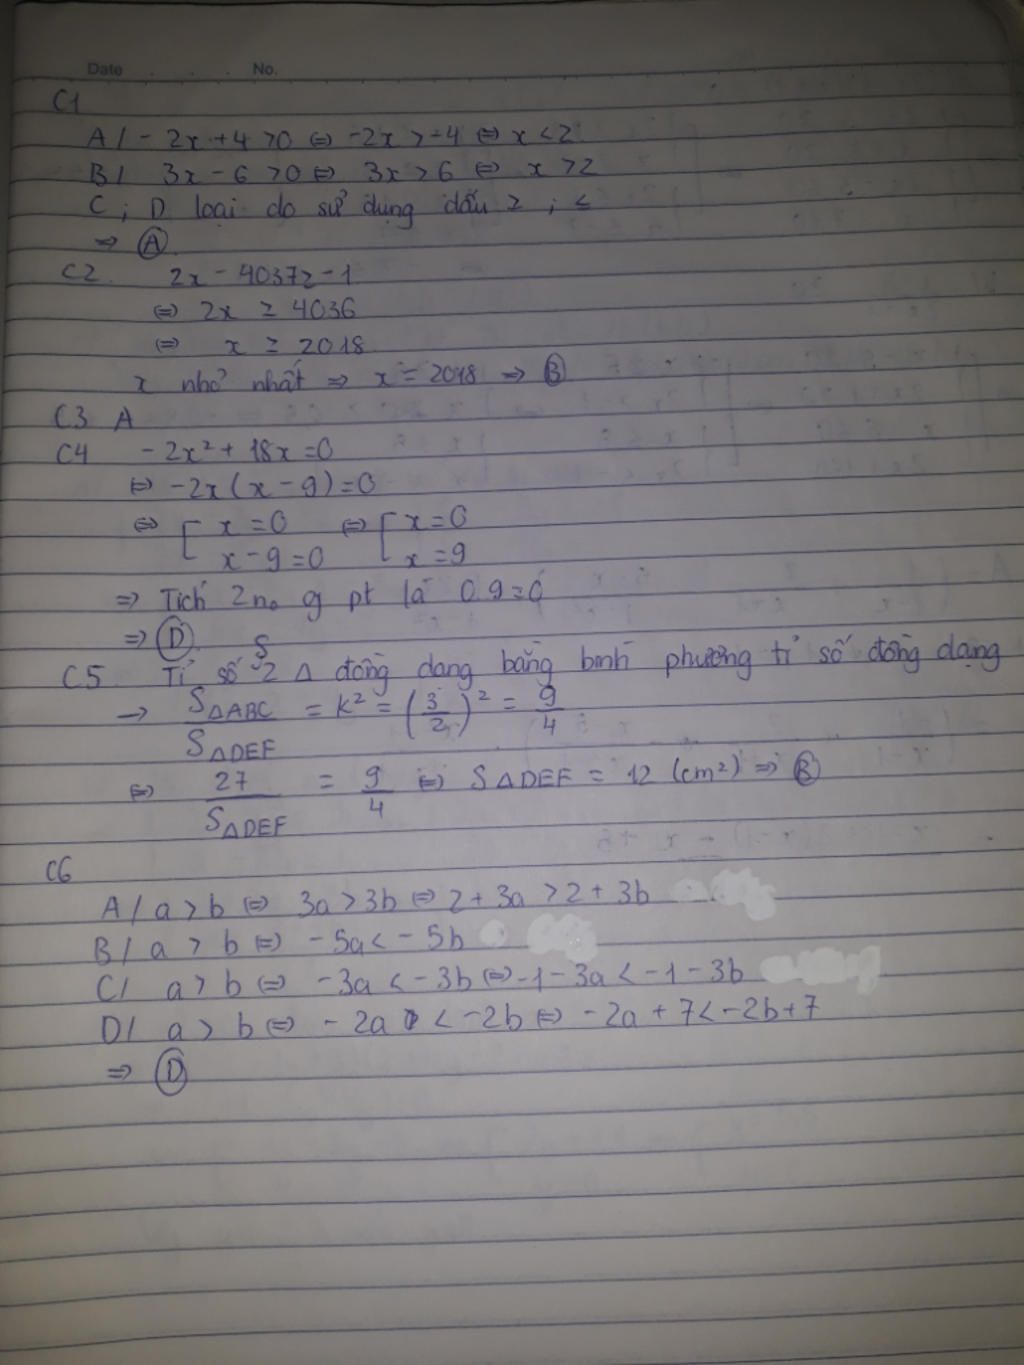 Date . . . No.
C1
A/ - 2x + 4 > 0 ⇔ -2x > -4 ⇔ x < 2
B/ 3x - 6 > 0 ⇔ 3x > 6 ⇔ x > 2
C ; D loại do sử dụng dấu ≥ ; ≤
⇒ A
C2. 2x - 4037 ≥ -1
⇔ 2x ≥ 4036
⇔ x ≥ 2018
x nhỏ nhất ⇒ x = 2018 ⇒ B
C3 A
C4 - 2x² + 18x = 0
⇔ -2x (x - 9) = 0
⇔ [ x = 0 ⇔ [ x = 0
x - 9 = 0 x = 9
⇒ Tích 2 n₀ g pt là 0.9 = 0
⇒ D
C5 Tỉ số S 2 Δ đồng dạng bằng bình phương tỉ số đồng dạng
→ SΔABC / SΔDEF = k² = (3/2)² = 9/4
⇔ 27 / SΔDEF = 9/4 ⇔ SΔDEF = 12 (cm²) ⇒ B
C6
A/ a > b ⇔ 3a > 3b ⇔ 2 + 3a > 2 + 3b
B/ a > b ⇔ - 5a < - 5b
C/ a > b ⇔ -3a < -3b ⇔ -1 - 3a < -1 - 3b
D/ a > b ⇔ - 2a < -2b ⇔ -2a + 7 < -2b + 7
⇒ D